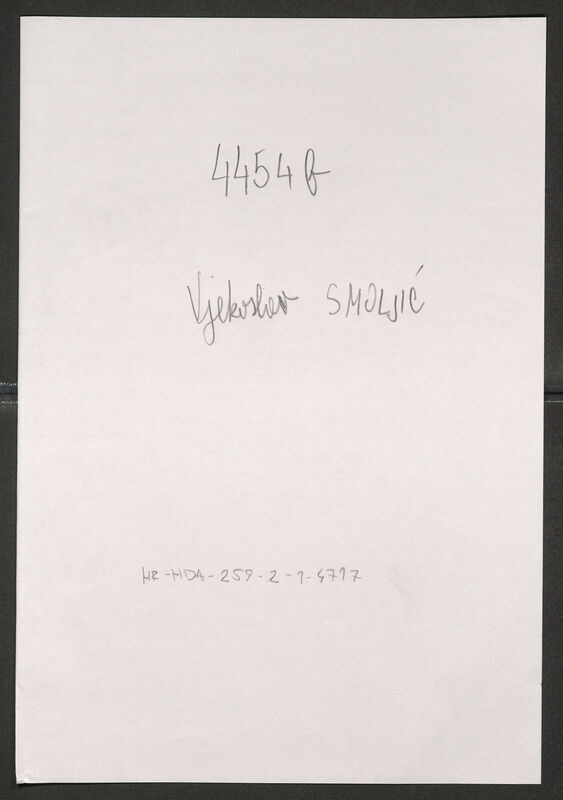 4454 b
Vjekoslav SMOLJIĆ
HR-HDA-259-2-1-4717